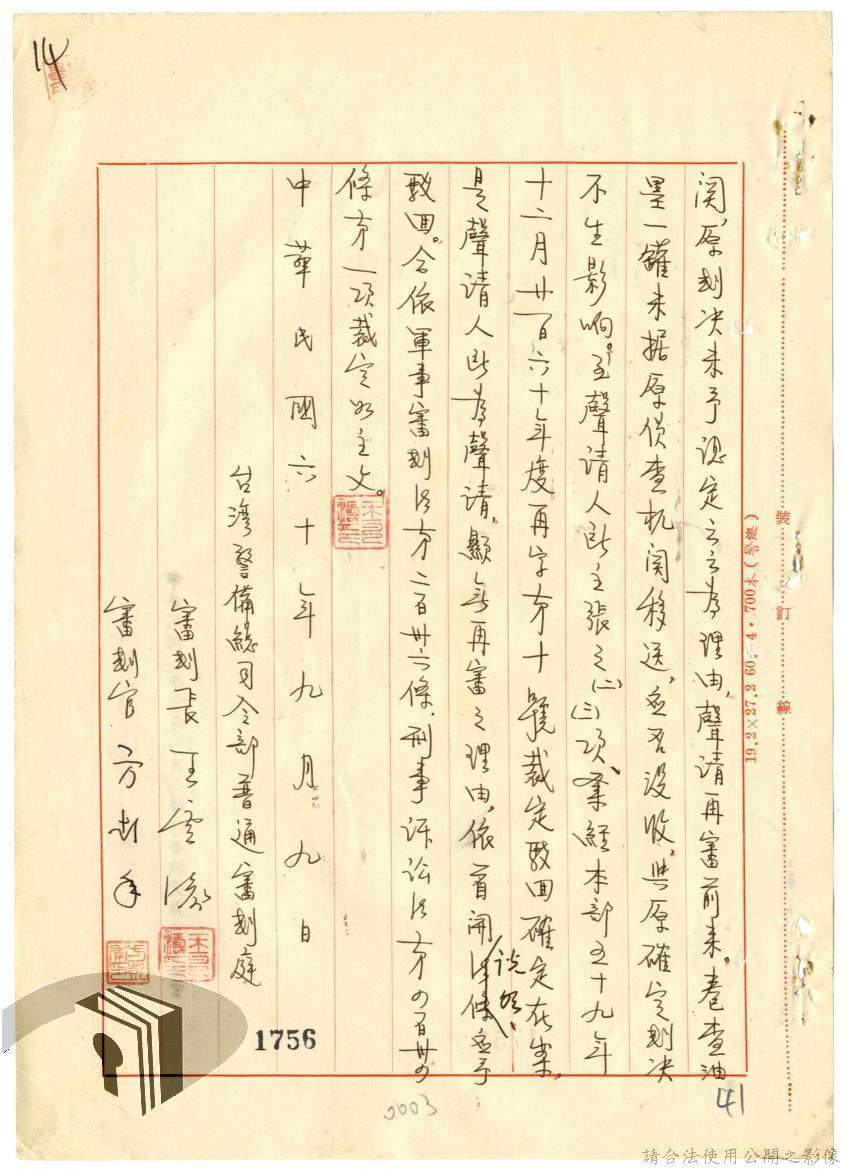 14
關,原判决未予認定云云為理由,聲請再審前來。卷查油
墨一罐未据原偵查机関移送,並否没收,與原確定判决
不生影响。至聲請人所主張之(二)(三)項、業經本部五十九年
十二月廿一日六十年度再字第十號裁定駁回確定在案。
是聲請人所為聲請,顯無再審之理由,依首開說明、應予
駁回。合依軍事審判法第二百卅六條,刑事訴訟法第四百卅四
條第一項裁定如主文。
中華民國六十年九月九日
台灣警備總司令部普通審判庭
審判長王雲濤
審判官方
裝訂線
19.2×27.2 60.4.700本(警總)
1756
41
0003
請合法使用公開之影像